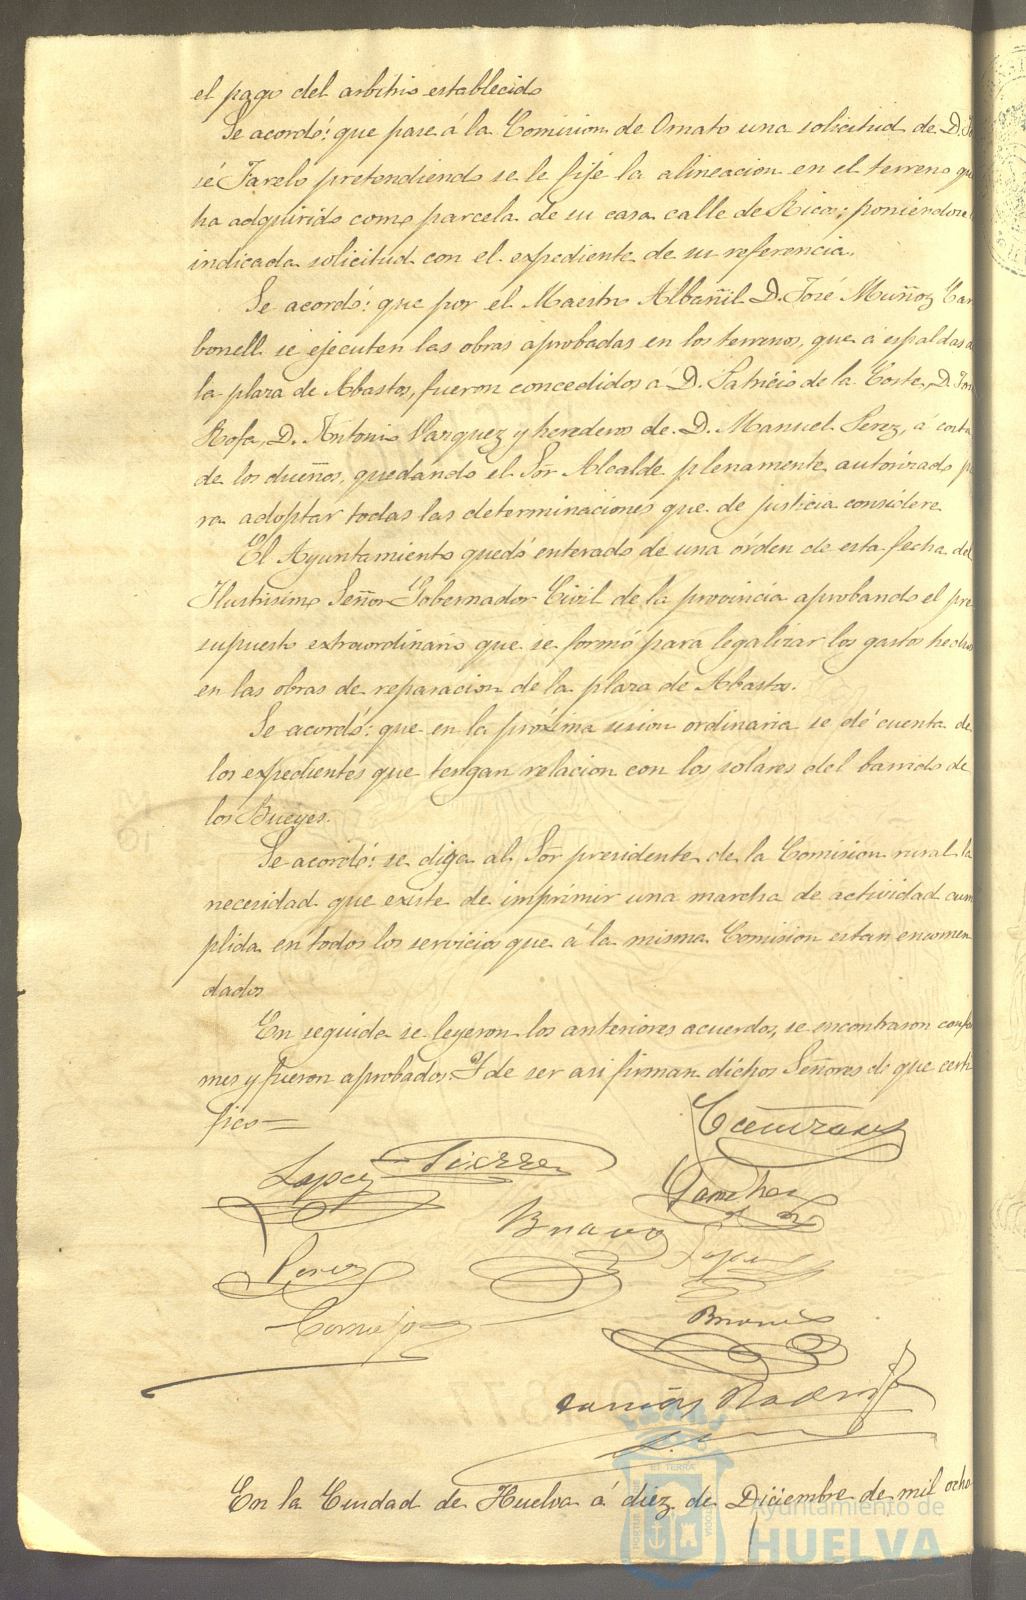 el pago del arbitrio establecido
Se acordó: que pase á la Comision de Ornato una solicitud de D. Jo
sé Farelo pretendiendo se le fije la alineacion en el terreno que
ha adquirido como parcela de su casa calle de Rico; poniendose
indicada solicitud con el expediente de su referencia.
Se acordó: que por el Maestro Albañil D. José Muñoz Car
bonell se ejecuten las obras aprobadas en los terrenos, que á espaldas
la plaza de Abastos, fueron concedidos á D. Patricio de la Corte, D.
Rofa, D. Antonio Vazquez y herederos de D. Manuel Perez, á costa
de los dueños, quedando el Sor Alcalde plenamente autorizado p
ra adoptar todas las determinaciones que de justicia considere
El Ayuntamiento quedó enterado de una orden de esta fecha del
Ilustrisimo Señor Gobernador Civil de la provincia aprobando el pre
supuesto extraordinario que se formó para legalizar los gastos hechos
en las obras de reparacion de la plaza de Abastos.
Se acordó: que en la próxima sesion ordinaria se dé cuenta de
los expedientes que tengan relacion con los solares del barrido de
los Bueyes.
Se acordó: se diga al Sor presidente de la Comision rural la
necesidad que existe de imprimir una marcha de actividad cum
plida en todos los servicios que á la misma Comision estan encomen
dados
En seguida se leyeron los anteriores acuerdos, se encontraron confor
mes y fueron aprobados. Y de ser asi firman dichos Señores de que certi
fico=
Lopez
Sanchez
Bravo
Lopez
Perez
Cornejo
En la Ciudad de Huelva á diez de Diciembre de mil ocho
Ayuntamiento de
HUELVA